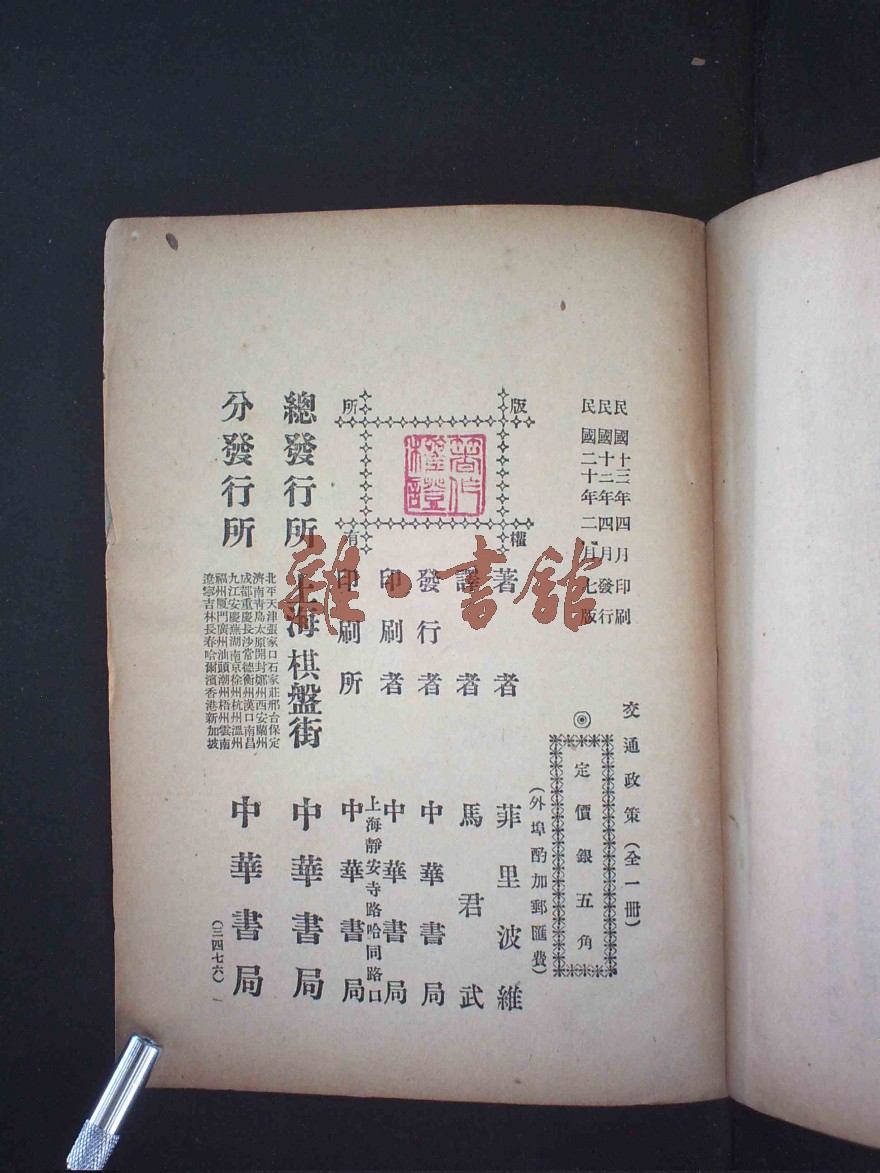 民國十三年四月印刷
民國十二年四月發行
民國二十年二月七版
交通政策(全一冊)
◎定價銀五角
(外埠酌加郵匯費)
版權所有
著作權證
著者 菲里波維
譯者 馬君武
發行者 中華書局
印刷者 中華書局
上海靜安寺路哈同路口
印刷所 中華書局
總發行所 上海棋盤街 中華書局
分發行所
北平天津張家口石家莊邢台保定
濟南青島太原開封鄭州西安蘭州
成都重慶長沙常德衡州漢口南昌
九江安慶蕪湖南京徐州杭州溫州
福州廈門廣州汕頭潮州梧州雲南
遼寧吉林長春哈爾濱香港新加坡
中華書局
(三四七六)
雜·書館